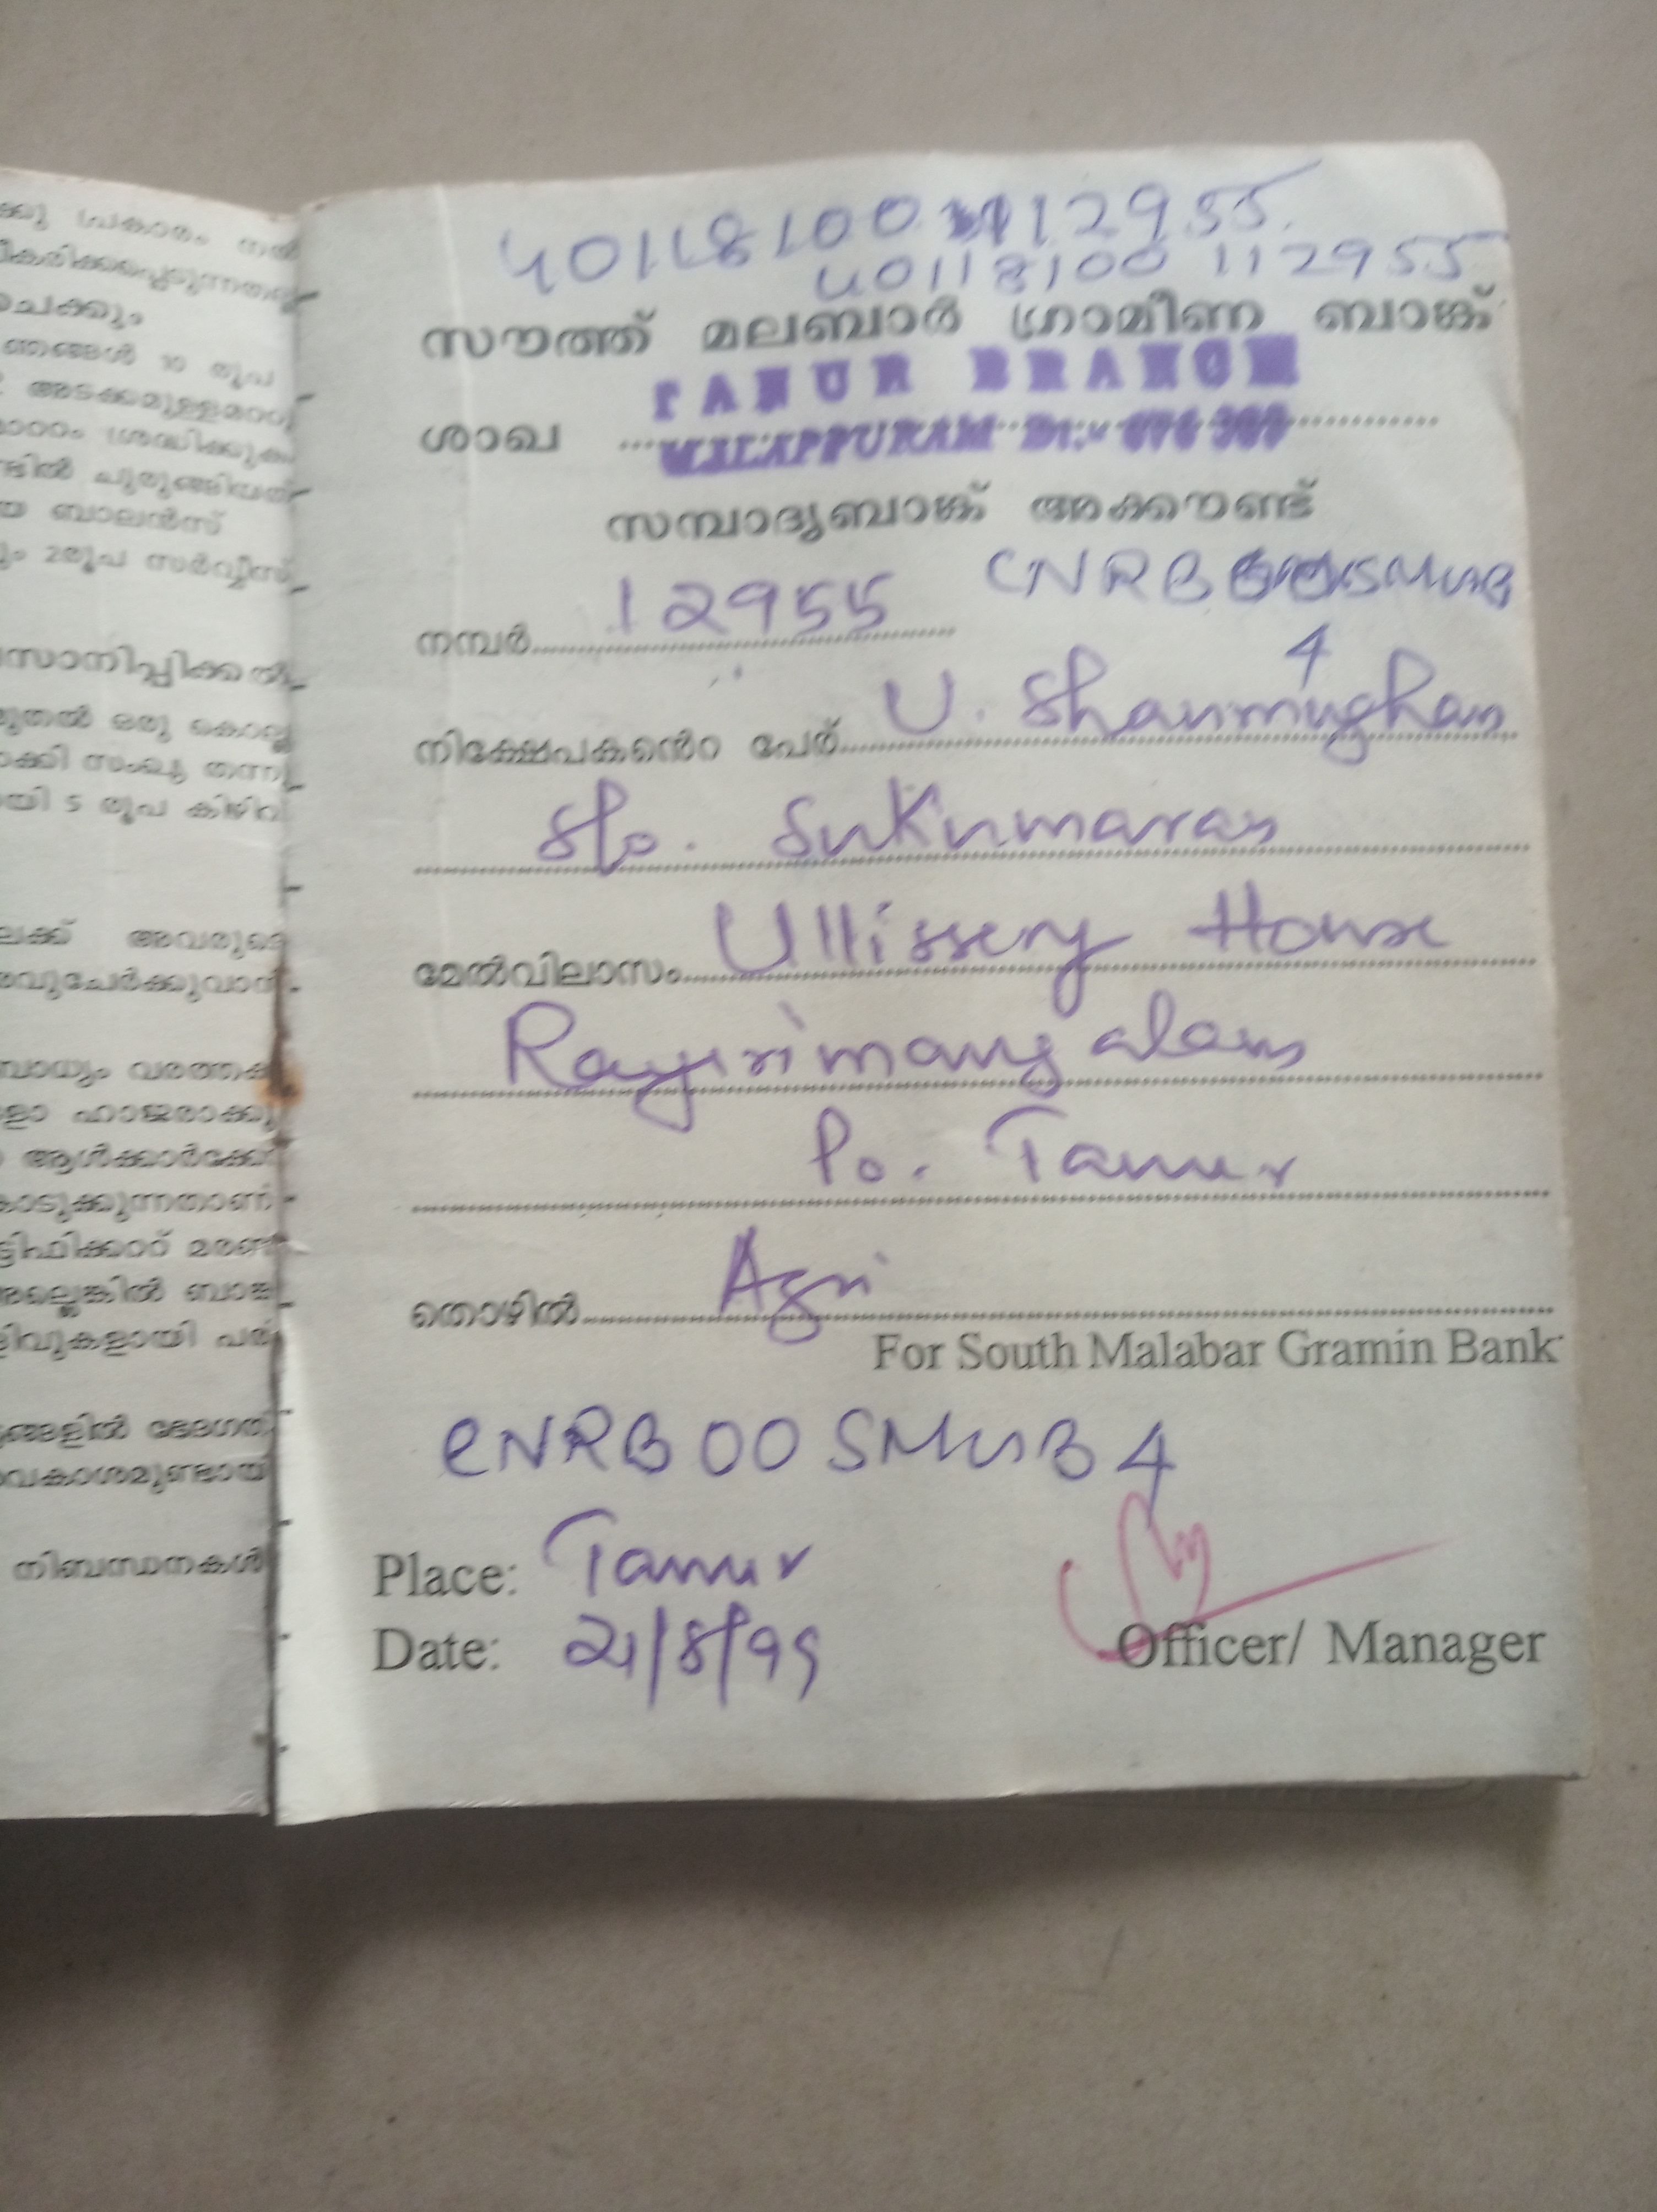 ക്കു പ്രകാരം നൽ
ചെക്കും
ഞങ്ങൾ 10 രൂപ
അടക്കമുള്ളമററു
മാററം ശ്രദ്ധിക്കുക
ണ്ടിൽ ചുരുങ്ങിയത്
യ ബാലൻസ്
ം 2രൂപ സർവ്വീസ്
സാനിപ്പിക്കൽ
മുതൽ ഒരു കൊല്ല
ാക്കി സംഖ്യ തന്നു
യി 5 രൂപ കിഴിവ്
ലക്ക് അവരുടെ
വുചേർക്കുവാൻ
ബാധ്യം വരത്തക്ക
ളോ ഹാജരാക്കു
ആൾക്കാർക്കോ
കൊടുക്കുന്നതാണ്
ട്ടിഫിക്കററ് മരണ
അല്ലെങ്കിൽ ബാങ്ക
ളിവുകളായി പരി
ങ്ങളിൽ ഭേദഗതി
വകാശമുണ്ടായി
നിബന്ധനകൾ
40118100 112955
40118100 112955
സൗത്ത് മലബാർ ഗ്രാമീണ ബാങ്ക്
TANUR BRANCH
ശാഖ
MALAPPURAM Dt.
സമ്പാദ്യബാങ്ക് അക്കൗണ്ട്
CNRB SMGB
നമ്പർ 12955
4
നിക്ഷേപകന്റെ പേര് U. Shanmughan
S/o. Sukumaran
മേൽവിലാസം Ullissery House
Rayirimangalam
Po. Tanur
തൊഴിൽ Agri
For South Malabar Gramin Bank
CNRB00SMGB4
Place: Tanur
Date: 21/8/99
Officer/ Manager